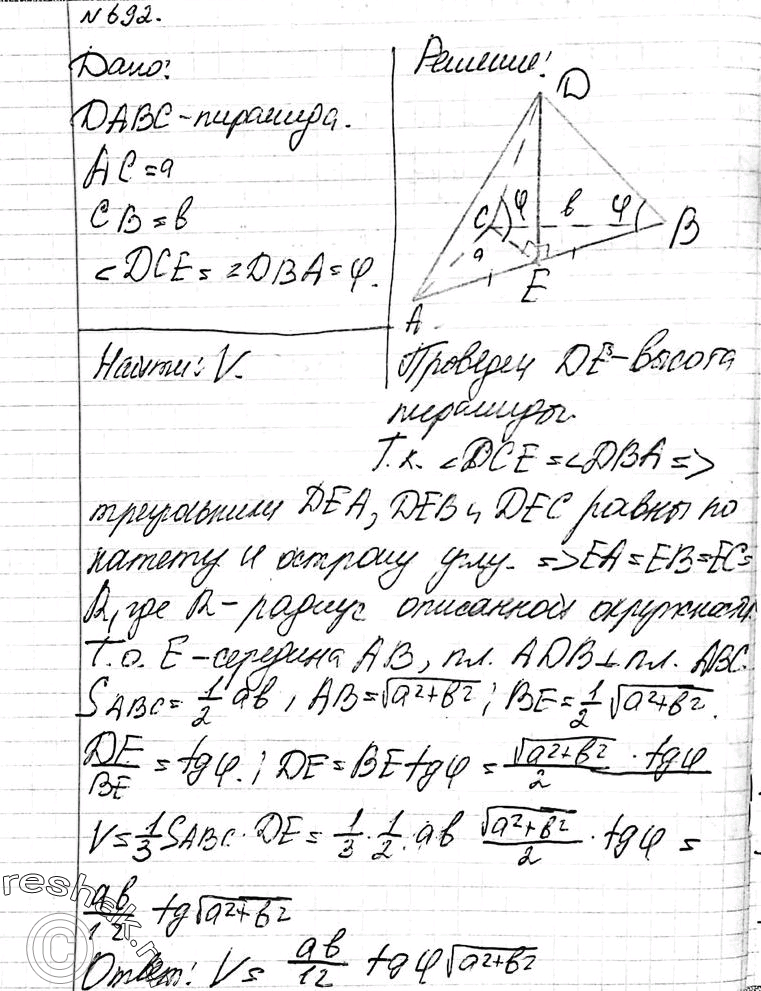 №692.
Дано:
DABC-пирамида.
AC=a
CB=в
∠DCE=∠DBA=φ.
Найти: V.
Решение:
D
C φ в φ B
a
E
A
Проведем DE-высота
пирамиды.
Т.к. ∠DCE=∠DBA=>
треугольники DEA, DEB и DEC равны по
катету и острому углу. =>EA=EB=EC=
R, где R-радиус описанной окружности.
Т.о. E-середина AB, пл. ADB⊥пл. ABC.
SABC=1/2 aв, AB=√a²+в²; BE=1/2 √a²+в².
DE/BE=tgφ.; DE=BE tgφ=√a²+в²/2 · tgφ
V=1/3 SABC·DE=1/3·1/2·aв √a²+в²/2 · tgφ=
aв/12 tg√a²+в²
Ответ: V= aв/12 tgφ√a²+в²
reshak.ru
©